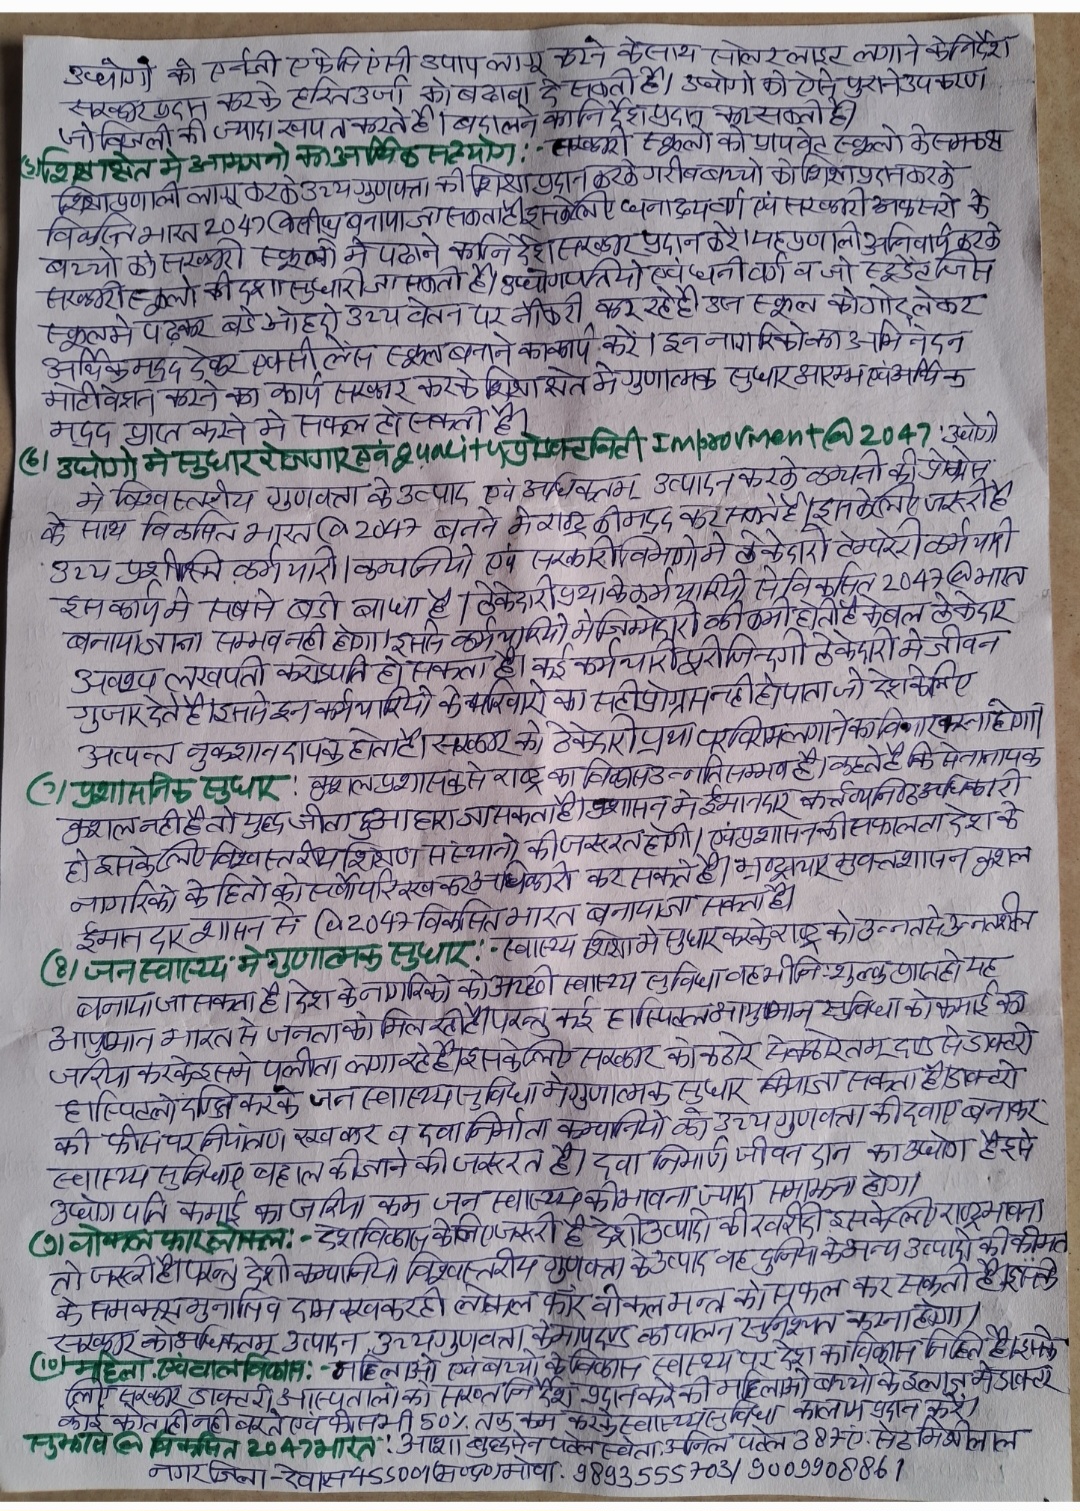 उध्योगो को एर्नजी एफेसिएंसी उपाय लागू करने के साथ सोलर लाइट लगाने के निर्देश
सरकार प्रदान करके हरित उर्जा को बढावा दे सकती है। उध्योगो को ऐसे पुराने उपकरण
जो बिजली की ज्यादा खपत करते है। बदालने का निर्देश प्रदान कर सकती है।
शिक्षा क्षेत्र मे आमजनो का आर्थिक सहयोग:- सरकारी स्कूलो को प्रायवेट स्कूलो के समकक्ष
शिक्षा प्रणाली लागू करके उच्य गुणवत्ता की शिक्षा प्रदान करके गरीब बच्चो को शिक्षा प्रदान करके
विकसित भारत 2047@ बनाया जा सकता है। इसके लिए धनाढ्य वर्ग एवं सरकारी अफसरो के
बच्चो को सरकारी स्कूलो मे पढाने का निर्देश सरकार प्रदान करे। यह प्रणाली अनिवार्य करके
सरकारी स्कूलो की दशा सुधारी जा सकती है। उध्योगपतियो एवं धनी वर्ग व जो स्टूडेंट जिस
स्कूल मे पढ़कर बडे ओहदे उच्य वेतन पर नौकरी कर रहे है। उस स्कूल को गोद लेकर
आर्थिक मदद देकर एक्सीलेंस स्कूल बनाने का कार्य करें। इन नागरिको का अभिनंदन
मोटीवेशन करने का कार्य सरकार करके शिक्षा क्षेत्र मे गुणात्मक सुधार आरम्भ एवं आर्थिक
मदद प्राप्त करने मे सफल हो सकती है।
(6) उध्योगो मे सुधार रोजगार एवं Quality प्रोडक्टविटी Improvment@2047: उध्योगो
मे विश्वस्तरीय गुणवत्ता के उत्पाद एवं अधिकतम उत्पादन करके कम्पनी की प्रोग्रेस
के साथ विकसित भारत@2047 बनने मे राष्ट्र की मदद कर सकते है। इसके लिए जरूरी है
उच्य प्रशीक्षित कर्मचारी। कम्पनियो एवं सरकारी विभागो मे ठेकेदारी टेम्परेरी कर्मचारी
इस कार्य मे सबसे बडी बाधा है। ठेकेदारी प्रथा के कर्मचारियो से विकसित 2047@भारत
बनाया जाना सम्भव नही होगा। इसमे कर्मचारियो मे जिम्मेदारी की कमी होती है केवल ठेकेदार
अवश्य लखपती करोडपति हो सकता है। कई कर्मचारी पूरी जिन्दगी ठेकेदारी मे जीवन
गुजार देते है। इससे इन कर्मचारियो के परिवारो का सही प्रोग्राम नही हो पाता जो देश के लिए
अत्यन्त नुकशानदायक होता है। सरकार को ठेकेदारी प्रथा पर विराम लगाने का विचार करना होगा।
(7) प्रशासनिक सुधार: कुशल प्रशासक से राष्ट्र का विकास उन्नति सम्भव है। कहते है कि सेनानायक
कुशल नही है तो युद्ध जीता हुआ हारा जा सकता है। प्रशासन मे ईमानदार कर्त्तव्यनिष्ठ अधिकारी
हो इसके लिए विश्वस्तरीय शिक्षण संस्थानो की जरूरत होगी। एवं प्रशासन की सफालता देश के
नागरिको के हितो को सर्वोपरि रखकर अधिकारी कर सकते है। भ्रष्टाचार मुक्त शासन कुशल
ईमानदार शासन से @2047 विकसित भारत बनाया जा सकता है।
(8) जन स्वास्थ्य मे गुणात्मक सुधार:- स्वास्थ्य शिक्षा मे सुधार करके राष्ट्र को उन्नत से उन्नतशील
बनाया जा सकता है। देश के नागरिको को अच्छी स्वास्थ्य सुविधा वह भी निःशुल्क प्राप्त हो यह
आयुष्मान भारत से जनता को मिल रही है। परन्तु कई हास्पिटल आयुष्मान सुविधा को कमाई का
जरिया करके इसमे पलीता लगा रहे है। इसके लिए सरकार को कठोर से कठोरतम दण्ड से डाक्टरो
हास्पिटलो दण्डित करके जन स्वास्थ्य सुविधा मे गुणात्मक सुधार किया जा सकता है। डाक्टरो
की फीस पर नियंत्रण रखकर व दवा निर्माता कम्पानियो को उच्य गुणवत्ता की दवाए बनाकर
स्वास्थ्य सुविधाए बहाल की जाने की जरूरत है। दवा निर्माण जीवन दान का उध्योग है इसे
उध्योगपति कमाई का जरिया कम जन स्वास्थ्य की भावना ज्यादा समझना होगा।
(9) वोकल फार लोकल:- देश विकास के लिए जरूरी है देशी उत्पादो की खरीदी इसके लिए राष्ट्रभावना
तो जरूरी है। परन्तु देशी कम्पानियो विश्वस्तरीय गुणवत्ता के उत्पाद वह दुनिया के अन्य उत्पादो की कीमत
के समकक्ष मुनासिव दाम रखकर ही लोकल फॉर वोकल मन्त्र को सफल कर सकती है। इसके
सरकार को अधिकतम उत्पादन, उच्य गुणवत्ता के मापदण्ड का पालन सुनिश्चत करना होगा।
(10) महिला एवं बाल विकास:- महिलाओ एवं बच्चो के विकास स्वास्थ्य पर देश का विकास निहित है। इसके
लिए सरकार डाक्टरो, आस्पतालो को सख्त निर्देश प्रदान करे की महिलाओ बच्चो के इलाज मे डाक्टर
कोई कोताही नही बरते एवं फीस भी 50% तक कम करके स्वास्थ्य सुविधा का लाभ प्रदान करे।
सुझाव@ विकसित 2047 भारत: आशा पटेल श्वेता अनिल पटेल 387ए सेठ मिश्रीलाल
नगर जिला-देवास 455001 (म.प्र.) मोबा. 9893555703/9009908861